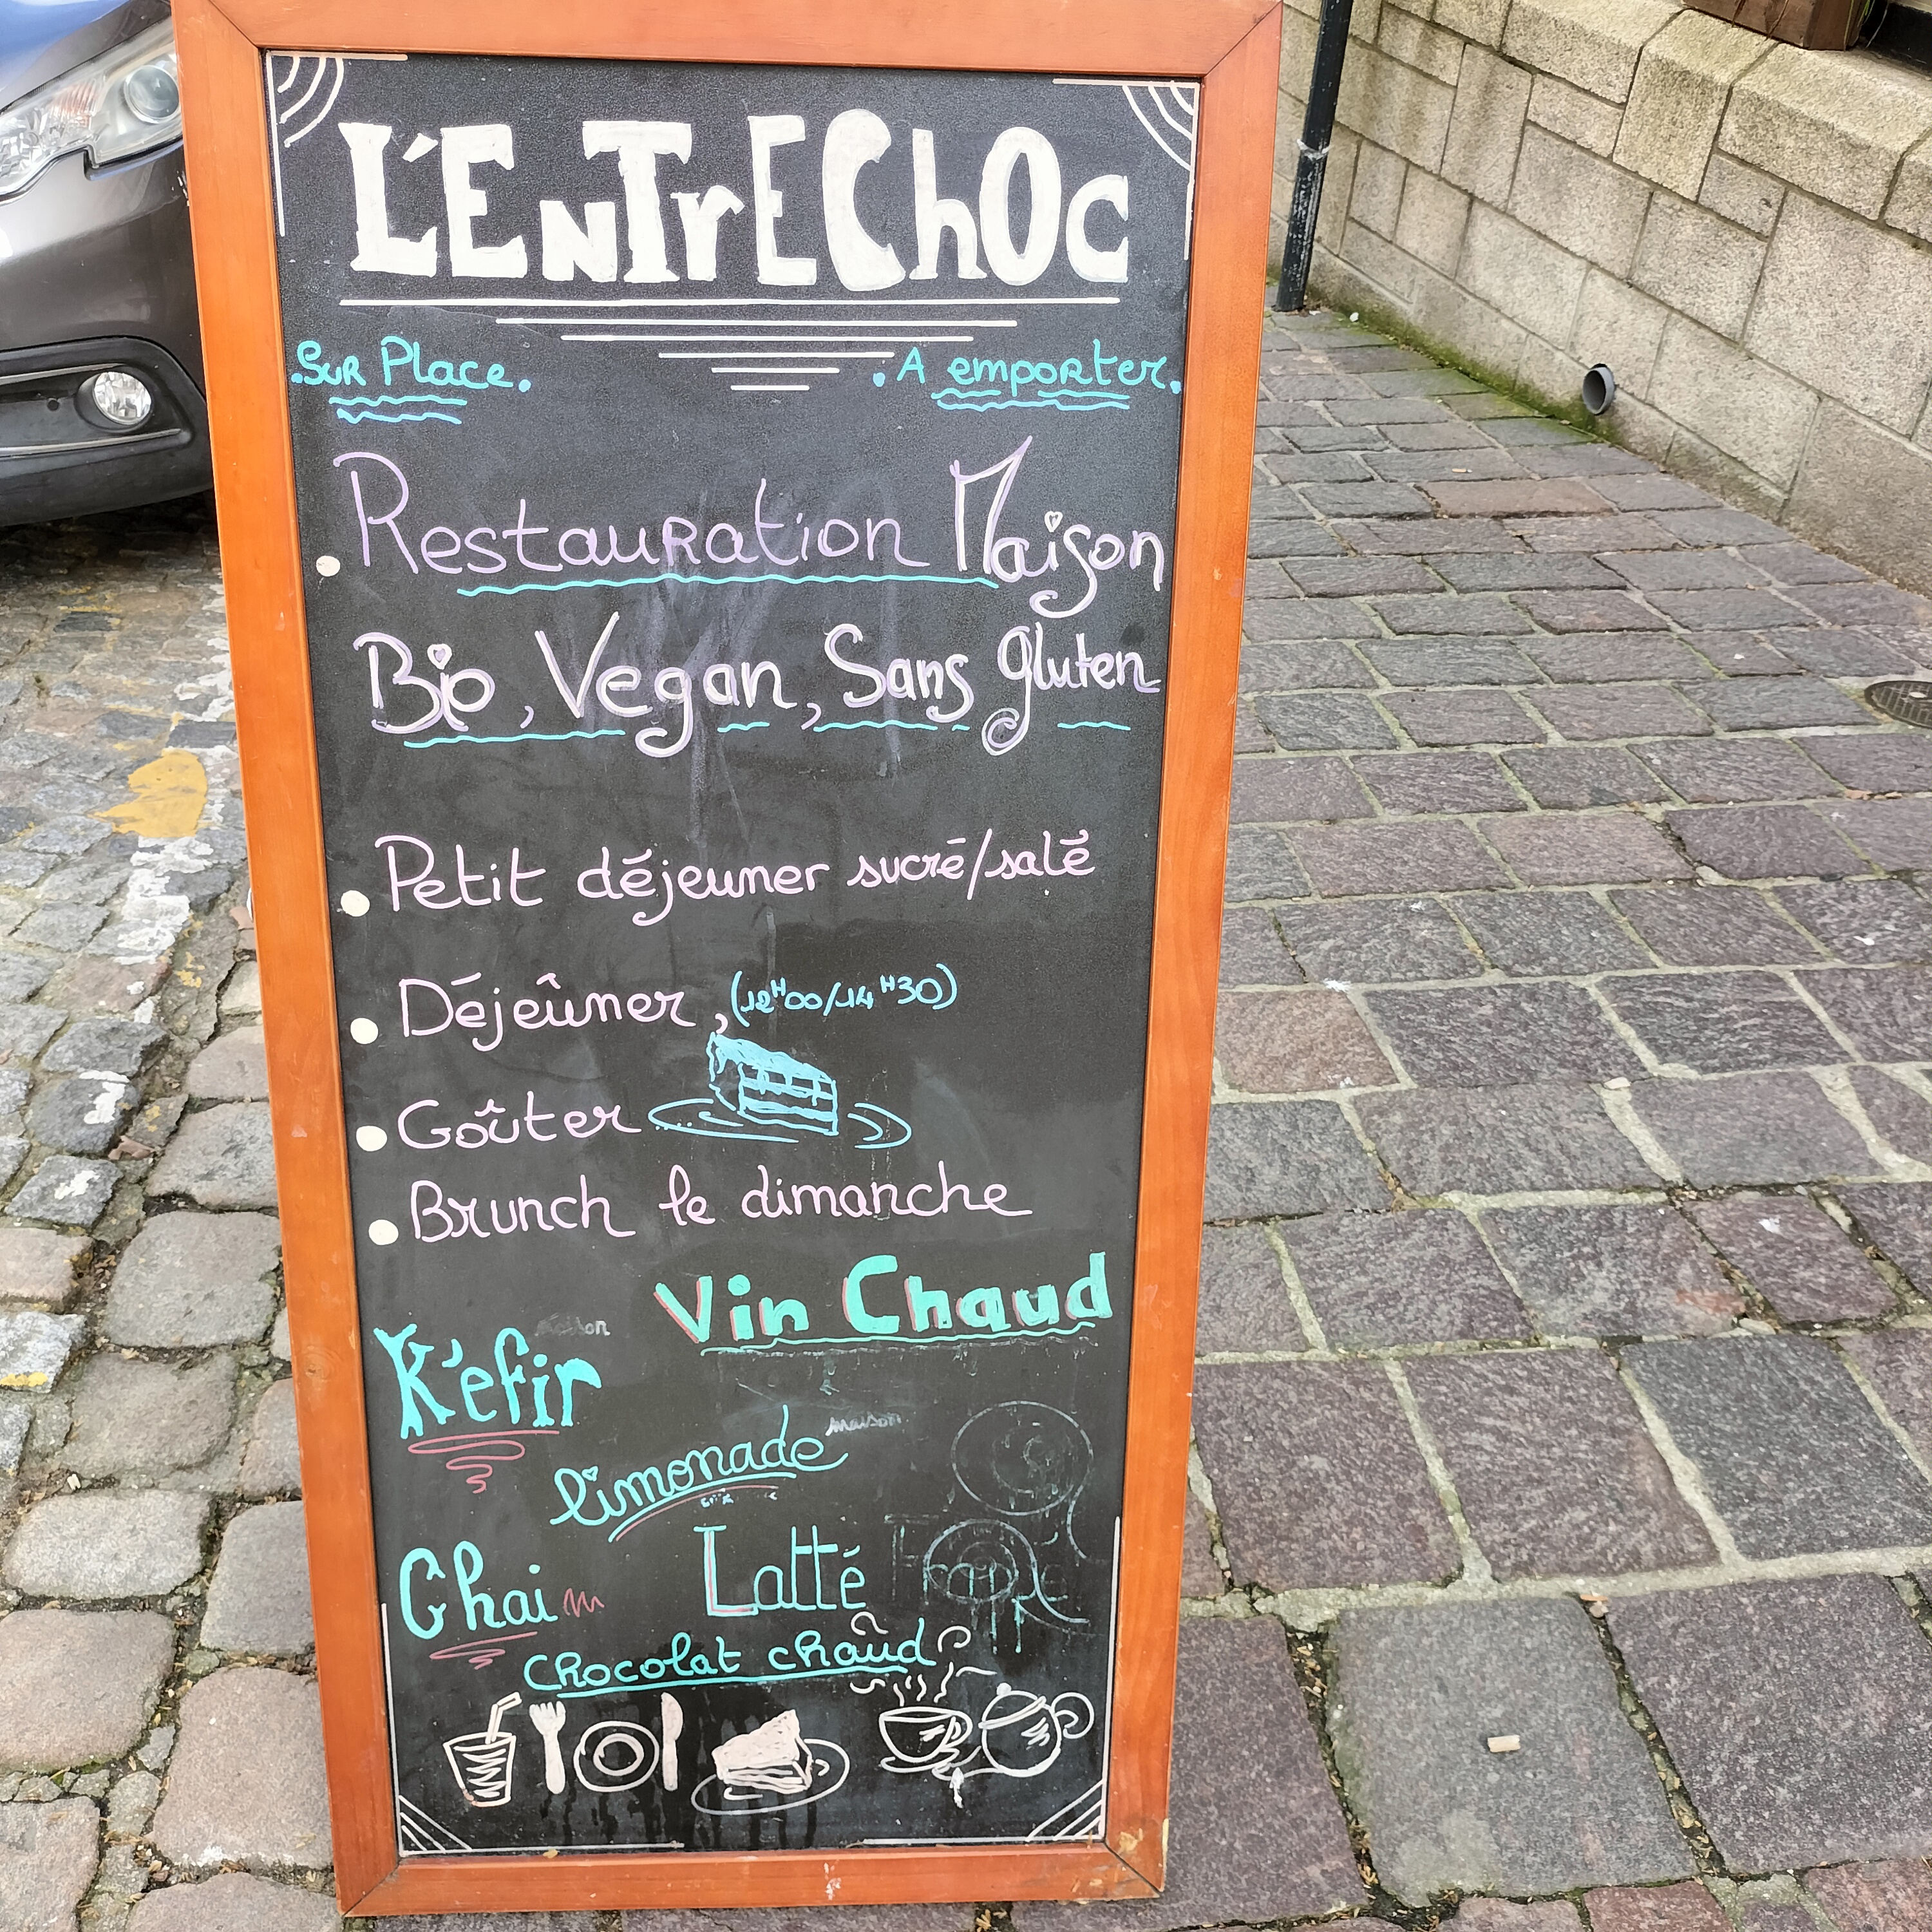 L'ENTrEChOC
.SUR Place. .A emporter.
Restauration Maison
Bio, Vegan, Sans gluten
Petit déjeuner sucré/salé
Déjeûner, (12H00/14H30)
Goûter
Brunch le dimanche
Vin Chaud
maison
K'efir
maison
limonade
Chai Latté Frappé
Chocolat chaud